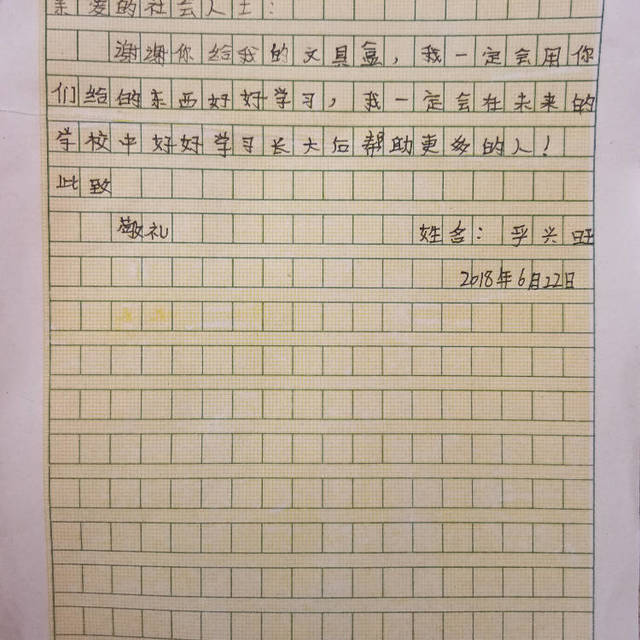 亲爱的社会人士：
谢谢你给我的文具盒，我一定会用你
们给的东西好好学习，我一定会在未来的
学校中好好学习长大后帮助更多的人！
此致
敬礼 姓名：孚兴旺
2018年6月22日